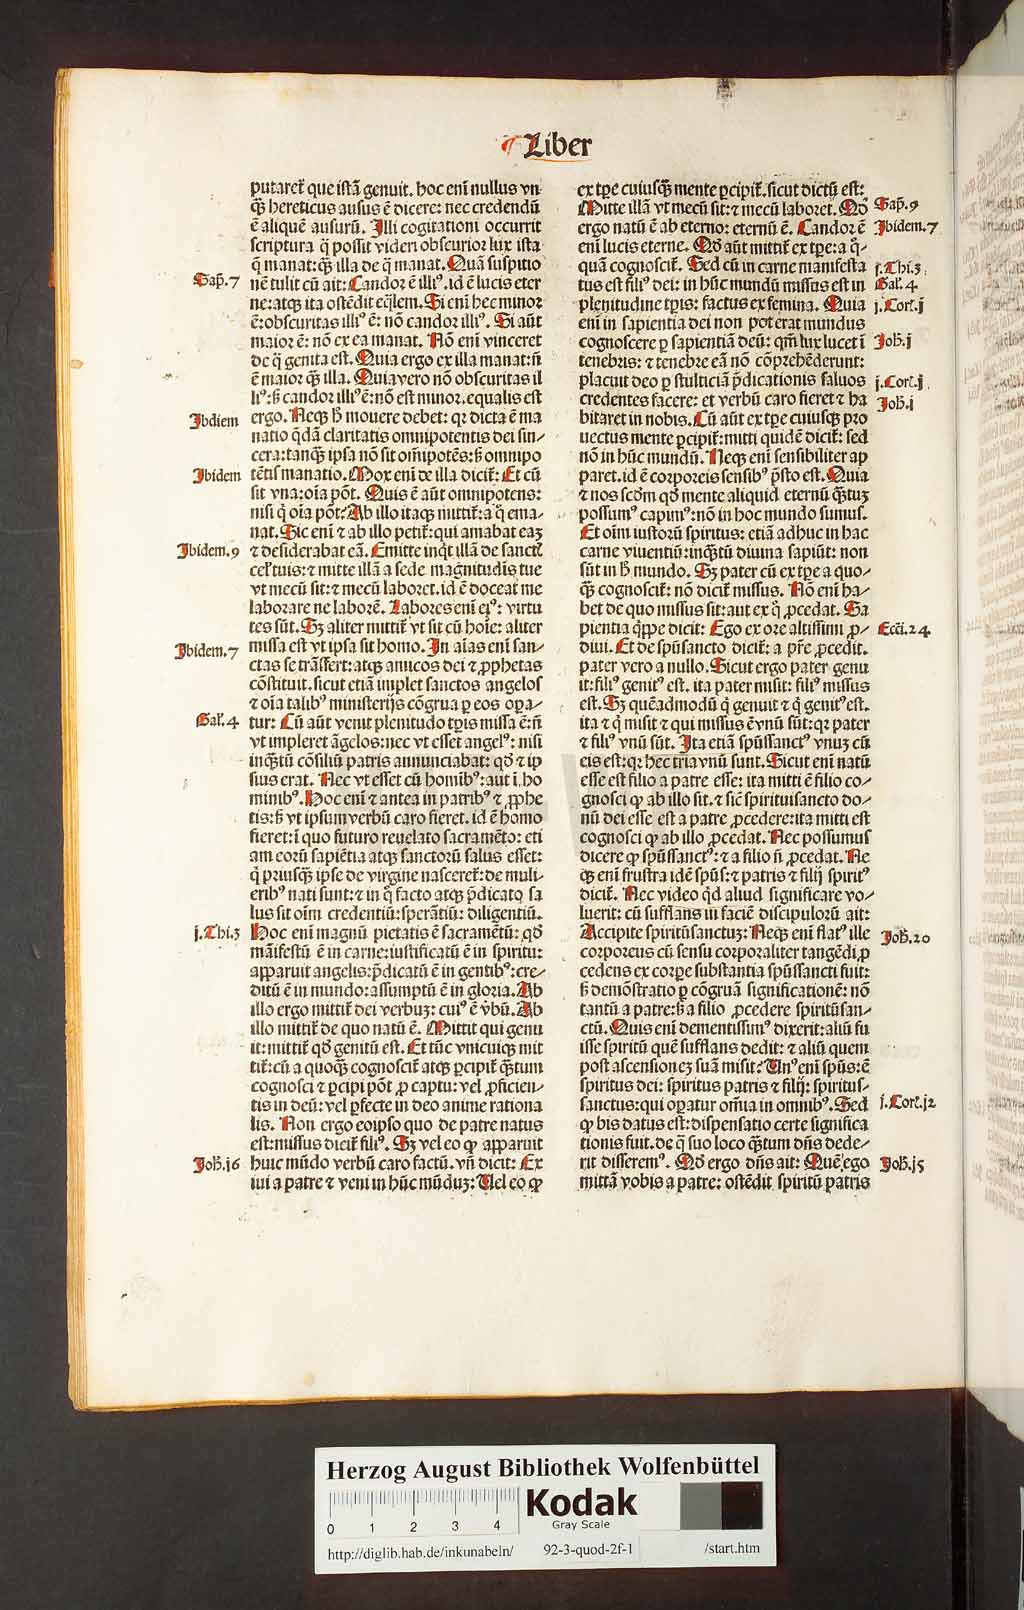 ¶ Liber
putaret̃ que istã genuit. hoc enĩ nullus vn
q̃ hereticus ausus ẽ dicere: nec credendũ
ẽ aliquẽ ausurũ. Illi cogitationi occurrit
scriptura q̃ possit videri obscurior lux ista
q̃ manat: q̃ illa de q̃ manat. Quã suspitio
Sap̃. 7
nẽ tulit cũ ait: Candor ẽ illiꝰ. id ẽ lucis eter
ne: atqꝫ ita ostẽdit eq̃lem. Si enĩ hec minor
ẽ: obscuritas illiꝰ ẽ: nõ candor illiꝰ. Si aũt
maior ẽ: nõ ex ea manat. Nõ enĩ vinceret
de q̃ genita est. Quia ergo ex illa manat: ñ
ẽ maior q̃ illa. Quia vero nõ obscuritas il
liꝰ: sꝫ candor illiꝰ ẽ: nõ est minor. equalis est
Jbdiem
ergo. Neqꝫ h̃ mouere debet: qꝛ dicta ẽ ma
natio q̃dã claritatis omnipotentis dei sin⸗
cera: tanq̃ ipsa nõ sit omĩpotẽs: sꝫ omnipo
Jbidem
tẽtis manatio. Mox enĩ de illa dicit̃: Et cũ
sit vna: oĩa põt. Quis ẽ aũt omnipotens:
nisi q̃ oĩa põt? Ab illo itaqꝫ mittit̃: a q̃ ema⸗
nat. Sic enĩ ⁊ ab illo petit̃: qui amabat eaꝫ
Jbidem. 9
⁊ desiderabat eã. Emitte inq̃t illã de sanct̃
cel̃ tuis: ⁊ mitte illã a sede magnitudis tue
vt mecũ sit: ⁊ mecũ laboret. id ẽ doceat me
laborare ne laborẽ. Labores enĩ eiꝰ: virtu
tes sũt. Sꝫ aliter mittit̃ vt sit cũ hoĩe: aliter
Jbidem. 7
missa est vt ipsa sit homo. In aĩas enĩ san⸗
ctas se trãsfert: atqꝫ amicos dei ⁊ ꝓphetas
cõstituit. sicut etiã implet sanctos angelos
⁊ oĩa talibꝰ ministerijs cõgrua ꝑ eos oꝑa⸗
Gal̃. 4
tur: Cũ aũt venit plenitudo tꝑis missa ẽ: ñ
vt impleret ãgelos: nec vt esset angelꝰ: nisi
inq̃tũ cõsiliũ patris annunciabat: qð ⁊ ip
sius erat. Nec vt esset cũ homibꝰ: aut ĩ ho
minibꝰ. Hoc enĩ ⁊ antea in patribꝰ ⁊ ꝓphe
tis: sꝫ vt ipsum verbũ caro fieret. id ẽ homo
fieret: ĩ quo futuro reuelato sacramẽto: eti
am eorũ sapiẽtia atqꝫ sanctorũ salus esset:
q̃ priusq̃ ipse de virgine nasceret̃: de muli⸗
eribꝰ nati sunt: ⁊ in q̃ facto atqꝫ p̃dicato sa
lus sit oĩm credentiũ: sperãtiũ: diligentiũ.
j. Thi. 3
Hoc enĩ magnũ pietatis ẽ sacramẽtũ: qð
mãifestũ ẽ in carne: iustificatũ ẽ in spiritu:
apparuit angelis: p̃dicatũ ẽ in gentibꝰ: cre⸗
ditũ ẽ in mundo: assumptũ ẽ in gloria. Ab
illo ergo mittit̃ dei verbuꝫ: cuiꝰ ẽ vbũ. Ab
illo mittit̃ de quo natũ ẽ. Mittit qui genu
it: mittit̃ qð genitũ est. Et tũc vnicuiqꝫ mit
tit̃: cũ a quoqꝫ cognoscit̃ atqꝫ ꝑcipit̃ q̃tum
cognosci ⁊ ꝑcipi põt ꝓ captu: vel ꝓficien⸗
tis in deũ: vel ꝑfecte in deo anime rationa
lis. Non ergo eoipso quo de patre natus
est: missus dicit̃ filiꝰ. Sꝫ vel eo qꝫ apparuit
Joh̃. 16
huic mũdo verbũ caro factũ. vñ dicit: Ex
iui a patre ⁊ veni in hũc mũduꝫ: Vel eo qꝫ
ex tꝑe cuiusq̃ mente ꝑcipit̃. sicut dictũ est:
Sap̃. 9
Mitte illã vt mecũ sit: ⁊ mecũ laboret. Qð
Jbidem. 7
ergo natũ ẽ ab eterno: eternũ ẽ. Candor ẽ
enĩ lucis eterne. Qð aũt mittit̃ ex tꝑe: a q̃⸗
j. Thi. 3
quã cognoscit̃. Sed cũ in carne manifesta
Gal̃. 4
tus est filiꝰ dei: in hũc mundũ missus est in
j. Cor̃. j
plenitudine tꝑis: factus ex femina. Quia
enĩ in sapientia dei non poterat mundus
Joh̃. j
cognoscere ꝑ sapientiã deũ: qm̃ lux lucet ĩ
tenebris: ⁊ tenebre eã nõ cõprehẽderunt:
j. Cor̃. j
placuit deo ꝑ stulticiã p̃dicationis saluos
Joh̃. j
credentes facere: et verbũ caro fieret ⁊ ha
bitaret in nobis. Cũ aũt ex tꝑe cuiusqꝫ pro
uectus mente ꝑcipit̃: mitti quidẽ dicit̃: sed
nõ in hũc mundũ. Neqꝫ enĩ sensibiliter ap
paret. id ẽ corporeis sensibꝰ p̃sto est. Quia
⁊ nos scðm qð mente aliquid eternũ q̃tuꝫ
possumꝰ capimꝰ: nõ in hoc mundo sumus.
Et oĩm iustorũ spiritus: etiã adhuc in hac
carne viuentiũ: inq̃tũ diuina sapiũt: non
sũt in h̃ mundo. Sꝫ pater cũ ex tꝑe a quo⸗
q̃ cognoscit̃: nõ dicit̃ missus. Nõ enĩ ha⸗
bet de quo missus sit: aut ex q̃ ꝓcedat. Sa
Ecci. 24
pientia q̃ppe dicit: Ego ex ore altissimi ꝓ⸗
diui. Et de spũsancto dicit̃: a pr̃e ꝓcedit.
pater vero a nullo. Sicut ergo pater genu
it: filiꝰ genitꝰ est. ita pater misit: filiꝰ missus
est. Sꝫ quẽadmodũ q̃ genuit ⁊ q̃ genitꝰ est.
ita ⁊ q̃ misit ⁊ qui missus ẽ vnũ sũt: qꝛ pater
⁊ filiꝰ vnũ sũt. Ita etiã spũssanctꝰ vnuꝫ cũ
eis est: qꝛ hec tria vnũ sunt. Sicut enĩ natũ
esse est filio a patre esse: ita mitti ẽ filio co⸗
gnosci qꝫ ab illo sit. ⁊ sic̃ spirituisancto do⸗
nũ dei esse est a patre ꝓcedere: ita mitti est
cognosci qꝫ ab illo ꝓcedat. Nec possumus
dicere qꝫ spũssanctꝰ: ⁊ a filio ñ ꝓcedat. Ne
qꝫ enĩ frustra idẽ spũs: ⁊ patris ⁊ filij spiritꝰ
dicit̃. Nec video qð aliud significare vo⸗
luerit: cũ sufflans in faciẽ discipulorũ ait:
Joh̃. 20
Accipite spiritũ sanctuꝫ: Neqꝫ enĩ flatꝰ ille
corporeus cũ sensu corporaliter tangẽdi ꝓ
cedens ex corꝑe substantia spũssancti fuit:
sꝫ demõstratio ꝑ cõgruã significationẽ: nõ
tantũ a patre: sꝫ a filio ꝓcedere spiritũ san⸗
ctũ. Quis enĩ dementissimꝰ dixerit: aliũ fu
isse spiritũ quẽ sufflans dedit: ⁊ aliũ quem
post ascensioneꝫ suã misit? Unꝰ enĩ spũs: ẽ
spiritus dei: spiritus patris ⁊ filij: spiritus⸗
j. Cor̃. 12
sanctus: qui oꝑatur om̃ia in omnibꝰ. Sed
qꝫ bis datus est: dispensatio certe significa
tionis fuit. de q̃ suo loco q̃tum dñs dede⸗
Joh̃. 15
rit disseremꝰ. Qð ergo dñs ait: Quẽ ego
mittã vobis a patre: ostẽdit spiritũ patris
Herzog August Bibliothek Wolfenbüttel
0 1 2 3 4
Kodak
Gray Scale
http://diglib.hab.de/inkunabeln/ 92-3-quod-2f-1 /start.htm